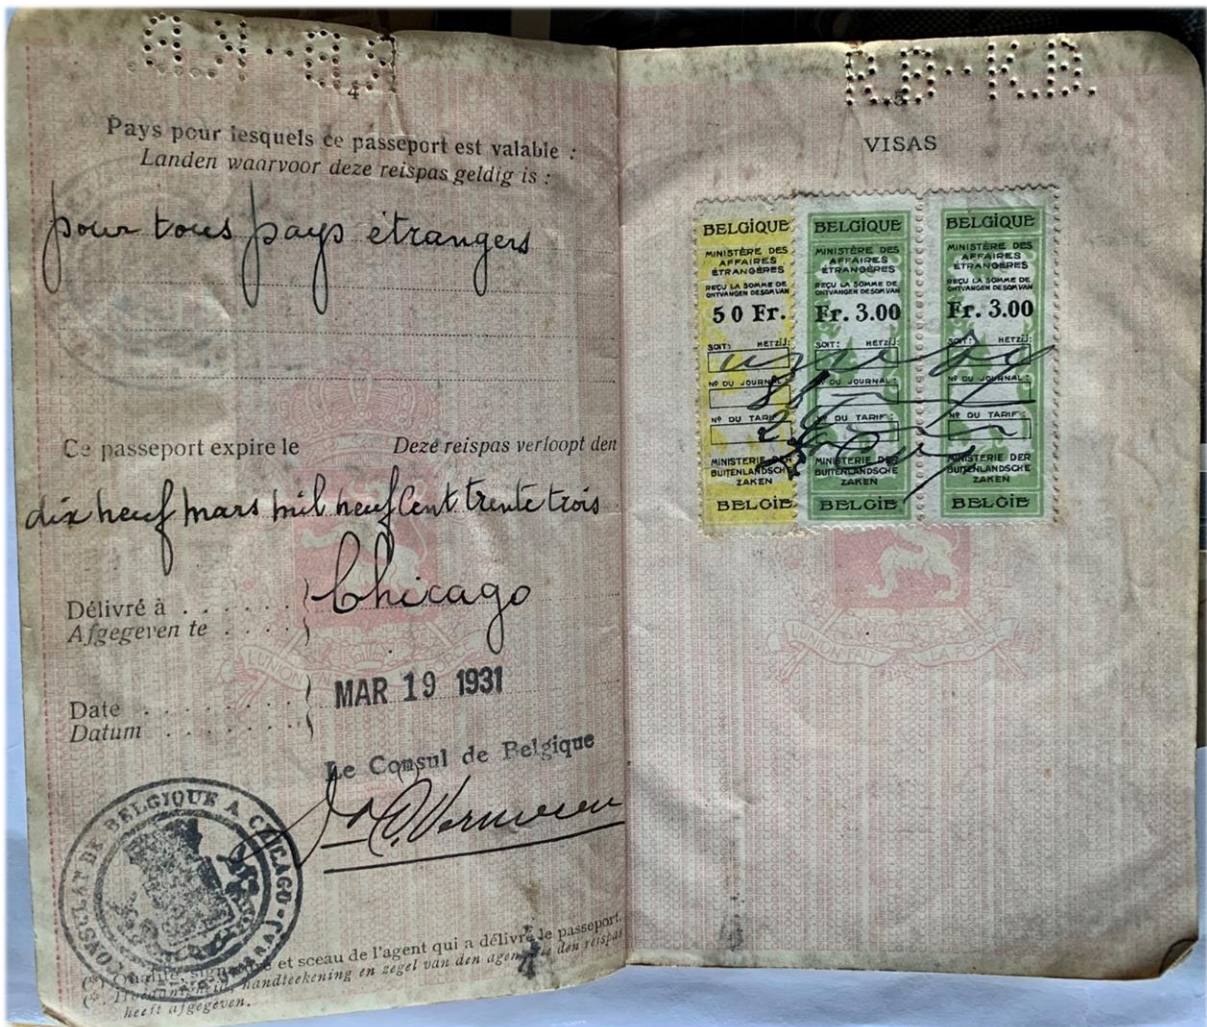 4
Pays pour lesquels ce passeport est valable :
Landen waarvoor deze reispas geldig is :
pour tous pays étrangers
Ce passeport expire le
Deze reispas verloopt den
dix neuf mars mil neuf Cent trente trois
Délivré à . . . . . .
Afgegeven te . . . .
Chicago
Date . . . . . . . .
Datum . . . . . . .
MAR 19 1931
Le Consul de Belgique
CONSULAT DE BELGIQUE A CHICAGO
(*) Qualité, signature et sceau de l'agent qui a délivré le passeport.
(*) Hoedanigheid, handteekening en zegel van den agent die den reispas
heeft afgegeven.
L'UNION FAIT LA FORCE
R.B-K.B.
5
VISAS
BELGIQUE
MINISTÈRE DES
AFFAIRES
ÉTRANGÈRES
REÇU LA SOMME DE
ONTVANGEN DE SOM VAN
50 Fr.
SOIT: HETZIJ:
Nº DU JOURNAL:
Nº DU TARIF:
MINISTERIE DER
BUITENLANDSCHE
ZAKEN
BELGIE
BELGIQUE
MINISTÈRE DES
AFFAIRES
ÉTRANGÈRES
REÇU LA SOMME DE
ONTVANGEN DE SOM VAN
Fr. 3.00
SOIT: HETZIJ:
Nº DU JOURNAL:
Nº DU TARIF:
MINISTERIE DER
BUITENLANDSCHE
ZAKEN
BELGIE
BELGIQUE
MINISTÈRE DES
AFFAIRES
ÉTRANGÈRES
REÇU LA SOMME DE
ONTVANGEN DE SOM VAN
Fr. 3.00
SOIT: HETZIJ:
Nº DU JOURNAL:
Nº DU TARIF:
MINISTERIE DER
BUITENLANDSCHE
ZAKEN
BELGIE
L'UNION FAIT LA FORCE